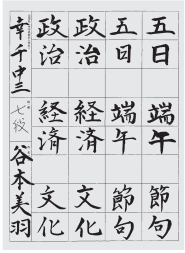 五日 端午 節句
五日 端午 節句
政治 経済 文化
政治 経済 文化
幸千中三 七段 谷本美羽